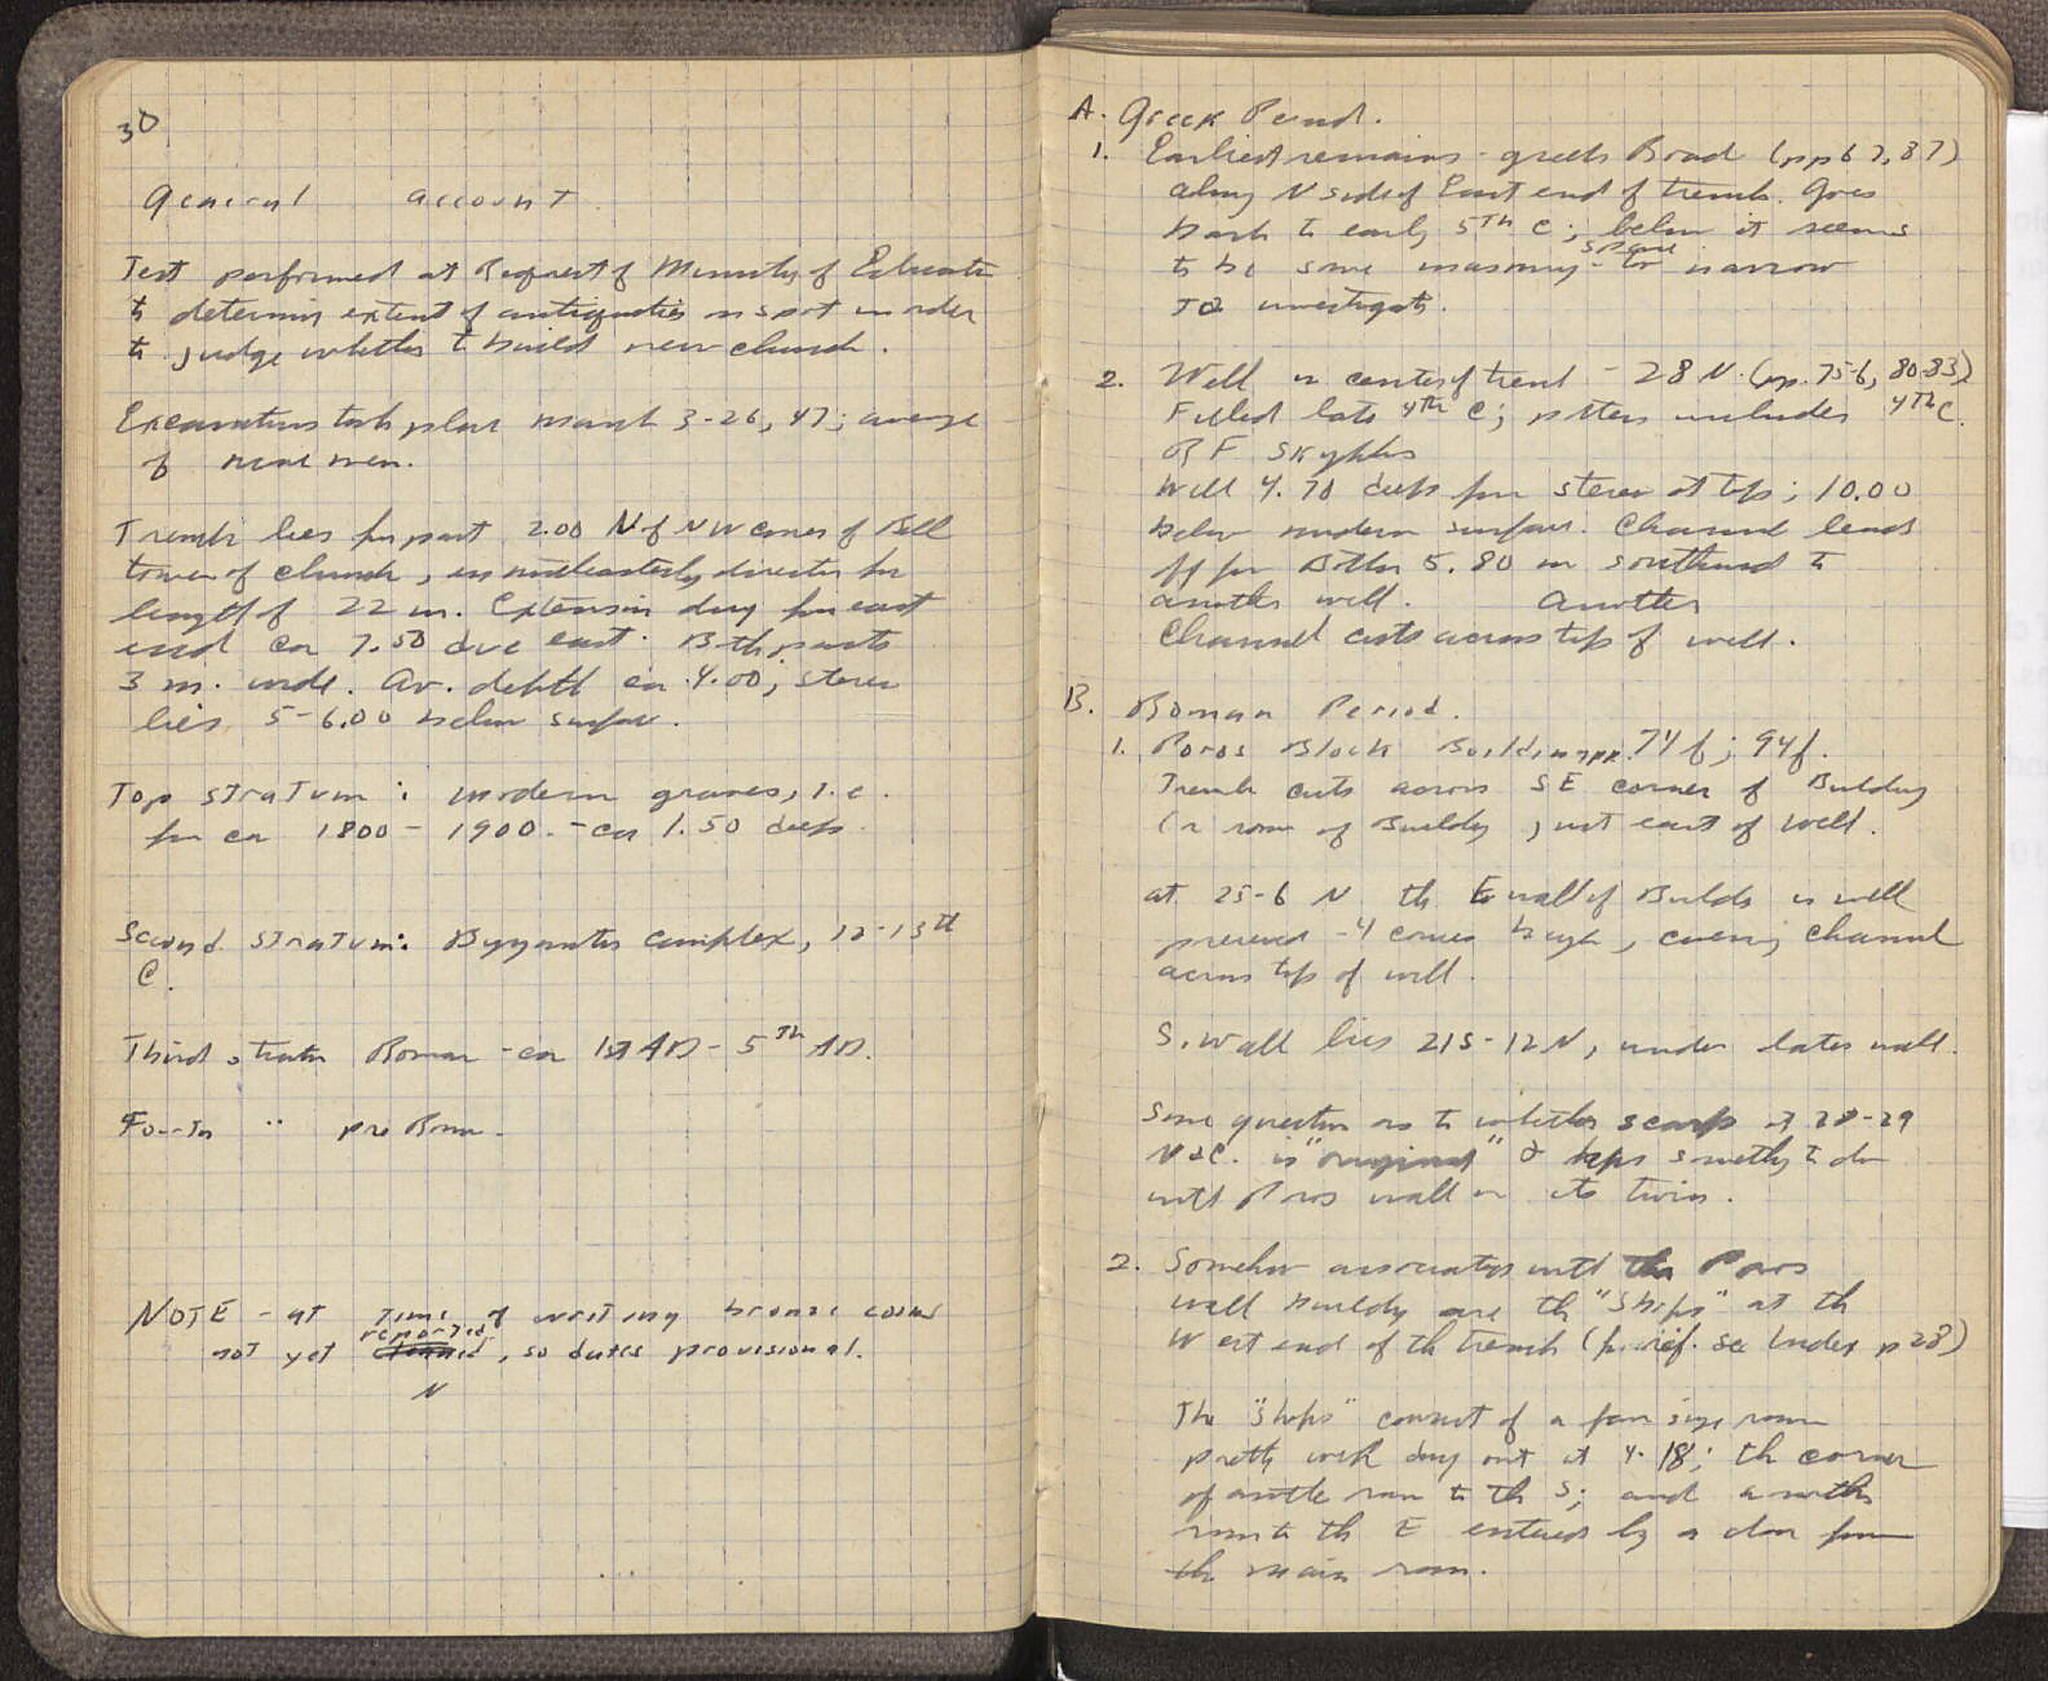 30
General account.
Test performed at Request of Ministry of Education
to determin extent of antiquities in spot in order
to judge whether to build new church.
Excavations took place March 3-26, 47; average
of nine men.
Trench lies from point 2.00 N of NW corner of Bell
tower of church, in northeasterly direction for
length of 22 m. Extension dug from east
end ca 7.50 due east. Both parts
3 m. wide. Av. depth ca 4.00; stereo
lies 5-6.00 below surface.
Top stratum: modern graves, i.e.
from ca 1800 - 1900. - ca 1.50 deep.
Second stratum: Byzantine complex, 12-13th
C.
Third stratum Roman - ca 1st AD - 5th AD.
Fourth " pre Roman -
NOTE - at time of writing bronze coins
reported
not yet cleaned, so dates provisional.
N
A. Greek Period.
1. Earliest remains - greek Road (pp 67, 87)
along N side of East end of trench. Goes
back to early 5th C; below it seems
space
to be some masonry - too narrow
to investigate.
2. Well in center of trench - 28 N. (pp. 75-6, 80-83)
Filled late 4th C; pottery includes 4th C.
RF Skyphos
Well 4.70 deep from stereo at top; 10.00
below modern surface. Channel leads
off from bottom 5.80 m southward to
another well. Another
channel cuts across top of well.
B. Roman Period.
1. Poros Block Building pp. 74 f; 94 f.
Trench cuts across SE corner of Building
(or room of Building) just east of well.
at 25-6 N the E wall of Buildg is well
preserved - 4 courses high, covering channel
across top of well.
S. Wall lies 215-12 N, under later wall.
Some question as to whether scarp at 28-29
N &C. is "original" & has something to do
with Poros wall or its twin.
2. Somehow associated with the Poros
wall building are the "Shops" at the
West end of the trench (for ref. see Index p 28)
The "Shops" consist of a fair size room
pretty well dug out at 4-18; the corner
of another room to the S; and another
room to the E entered by a door from
the main room.